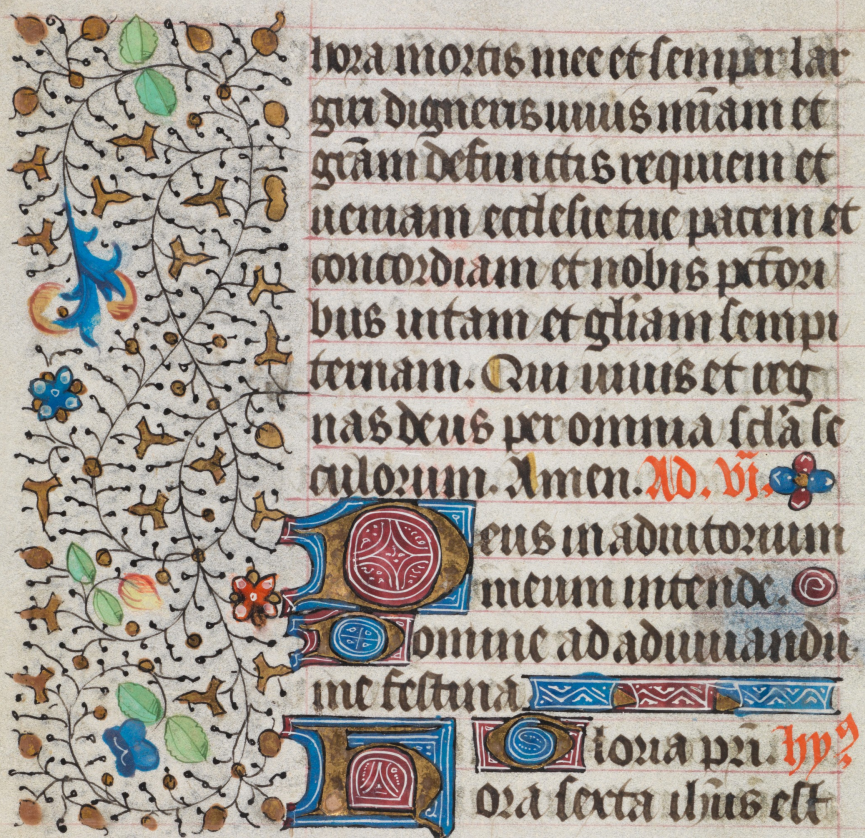 hora mortis mee et semper lar
giri digneris uiuis mīam et
grām defunctis requiem et
ueniam ecclesie tue pacem et
concordiam et nobis pctori
bus uitam et gliam sempi
ternam. Qui uiuis et reg
nas deus per omnia scla se
culorum. Amen. Ad. vj.
Deus in adiutorium
meum intende.
Domine ad adiuuandū
me festina
Gloria pri. hyꝰ
Hora sexta ihus est